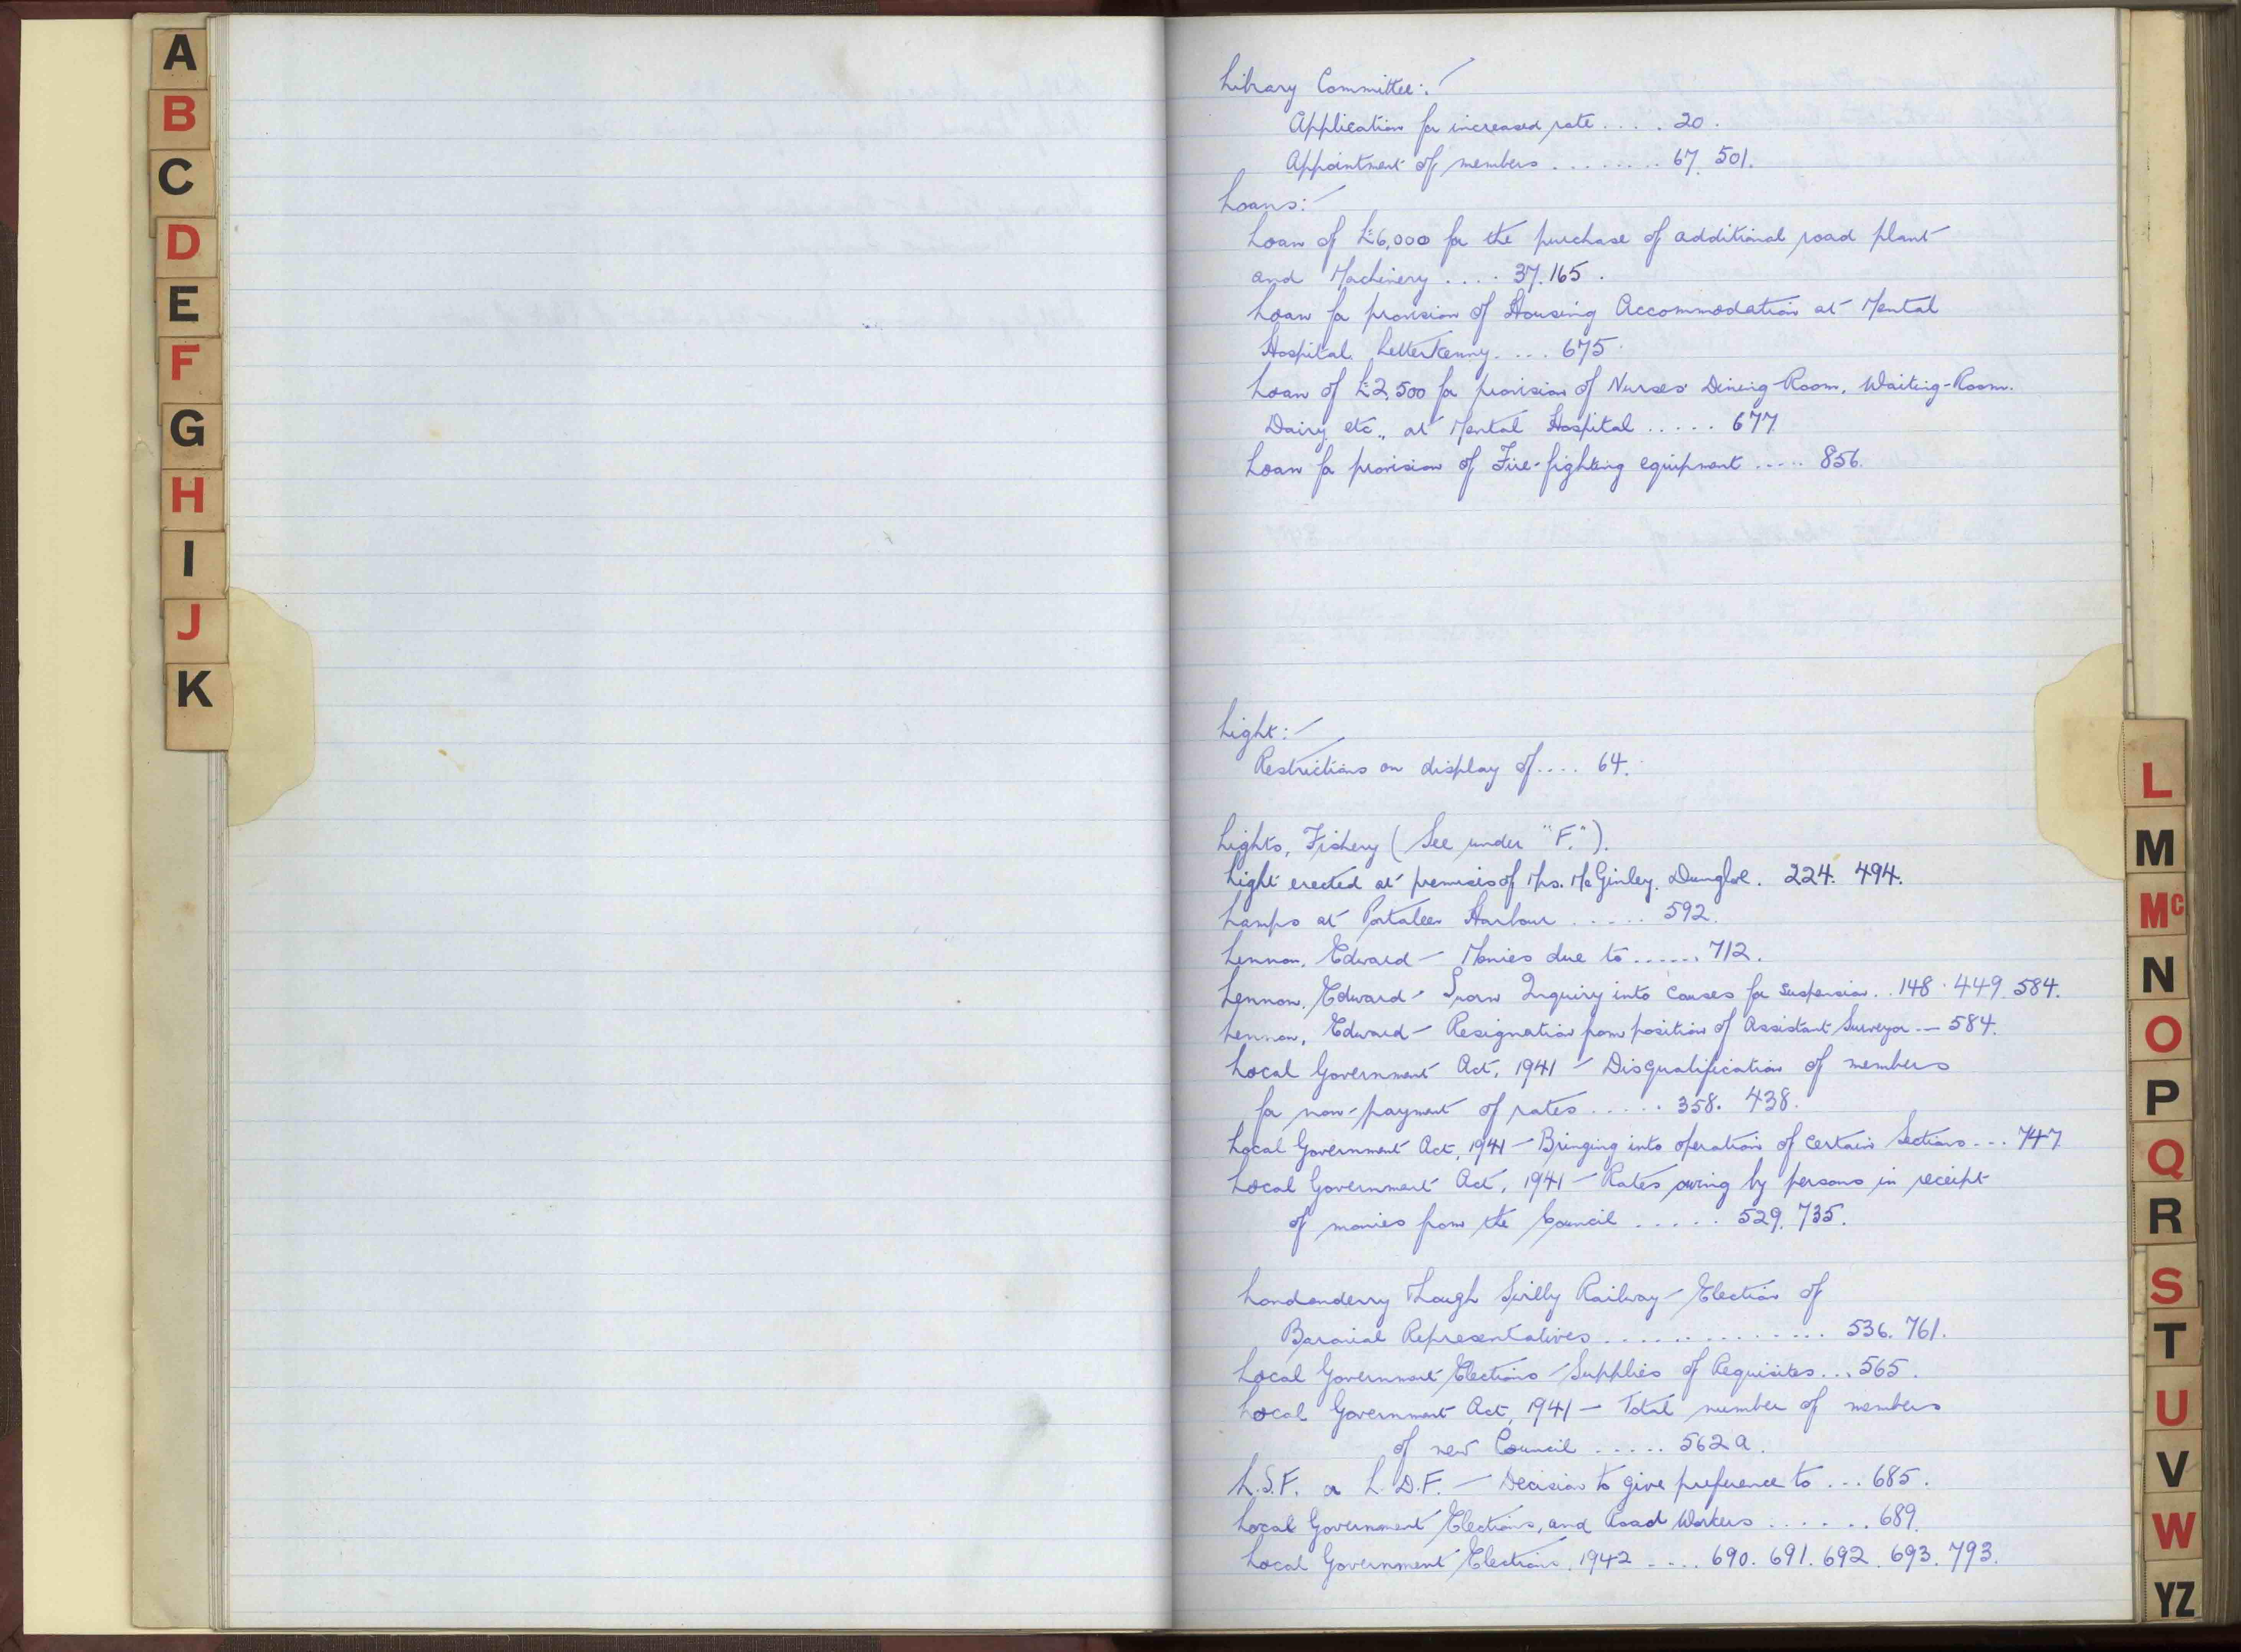 A
B
C
D
E
F
G
H
I
J
K
Library Committee:-
Application for increased rate .... 20.
Appointment of members ........ 67. 501.
Loans:-
Loan of £6,000 for the purchase of additional road plant
and Machinery .... 37. 165.
Loan for provision of Housing Accommodation at Mental
Hospital, Letterkenny .... 675.
Loan of £2,500 for provision of Nurses' Dining-Room, Waiting-Room.
Dairy, etc., at Mental Hospital ..... 677.
Loan for provision of Fire-fighting equipment ..... 856.
Light:-
Restrictions on display of .... 64.
Lights, Fishery (See under "F.").
Light erected at premises of Mrs. McGinley, Dungloe. 224. 494.
Lamps at Portaleen Harbour ...... 592.
Lennon, Edward - Monies due to ...... 712.
Lennon, Edward - Sworn Inquiry into causes for suspension .. 148. 449. 584.
Lennon, Edward - Resignation from position of Assistant Surveyor ... 584.
Local Government Act, 1941 - Disqualification of members
for non-payment of rates ..... 358. 438.
Local Government Act, 1941 - Bringing into operation of certain Sections ... 747.
Local Government Act, 1941 - Rates owing by persons in receipt
of monies from the Council ..... 529. 735.
Londonderry Lough Swilly Railway - Election of
Baronial Representatives .............. 536. 761.
Local Government Elections - Supplies of Requisites ... 565.
Local Government Act, 1941 - Total number of members
of new Council ..... 562a.
L.S.F. or L.D.F. - Decision to give preference to ... 685.
Local Government Elections, and Road Workers ...... 689.
Local Government Elections, 1942 .... 690. 691. 692. 693. 793.
L
M
Mc
N
O
P
Q
R
S
T
U
V
W
YZ